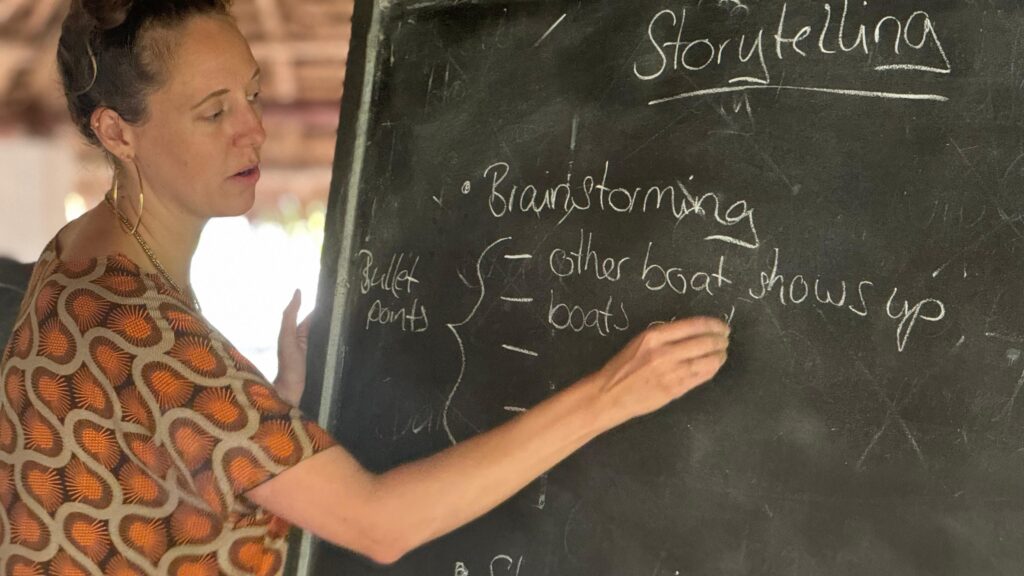 Storytelling
• Brainstorming
Bullet points
– other boat shows up
– boats
–
–